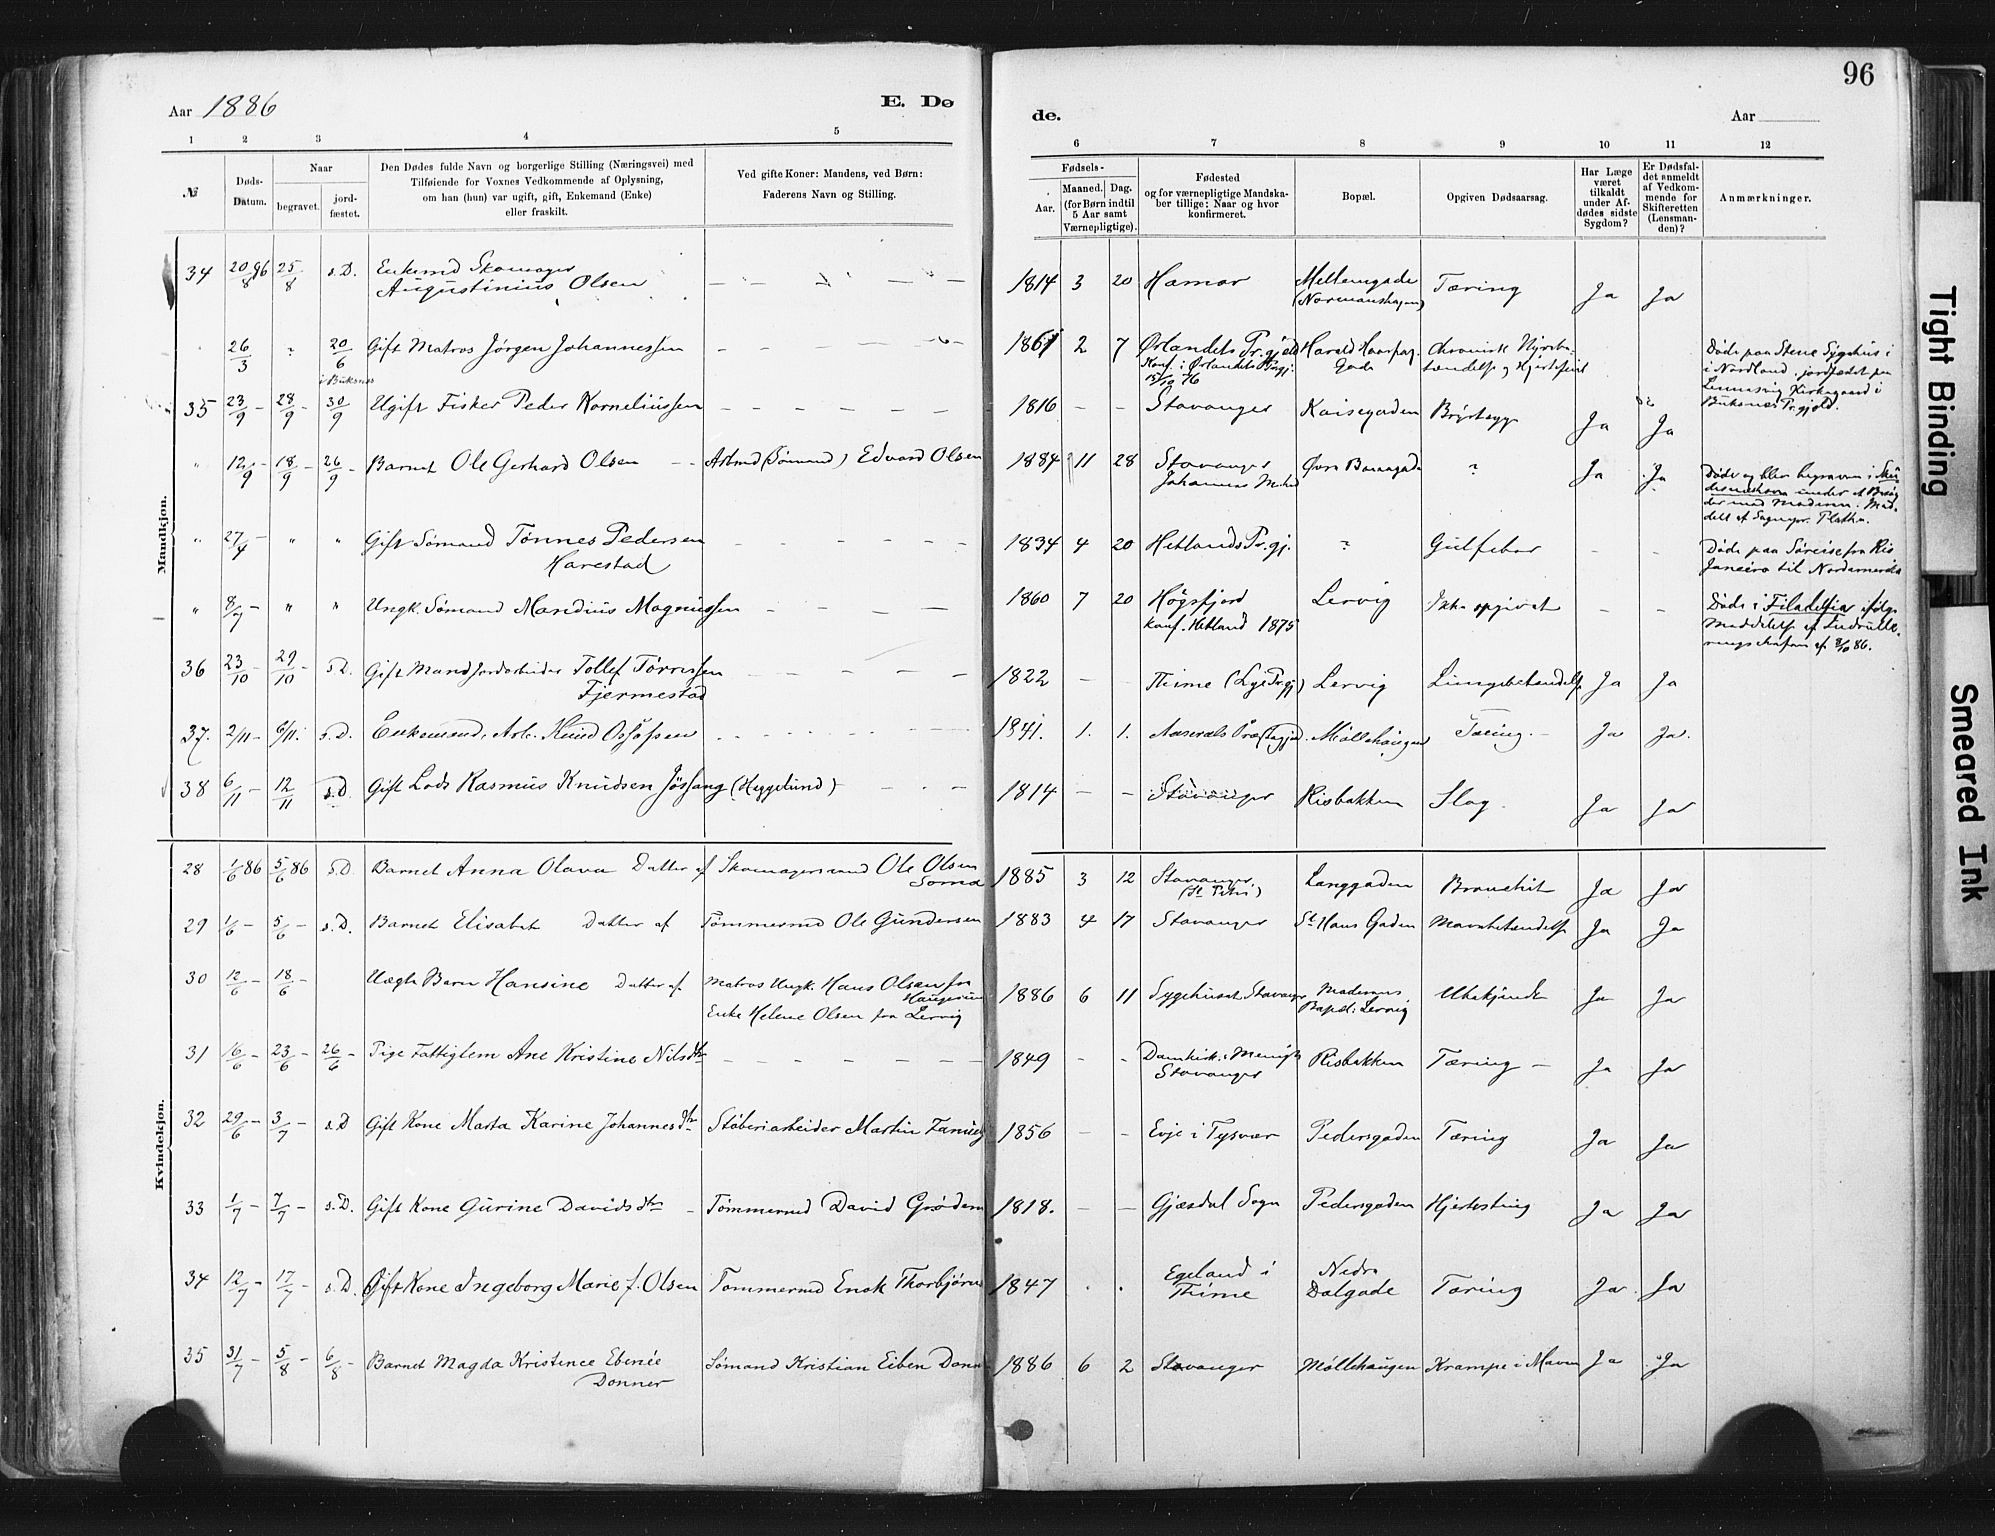 96
Aar 1886
E. Dø
de.
Aar
1 2 3 4 5 6 7 8 9 10 11 12
№
Døds-Datum.
Naar
begravet.
jord-fæstet.
Den Dødes fulde Navn og borgerlige Stilling (Næringsvei) med
Tilføiende for Voxnes Vedkommende af Oplysning,
om han (hun) var ugift, gift, Enkemand (Enke)
eller fraskilt.
Ved gifte Koner: Mandens, ved Børn:
Faderens Navn og Stilling.
Fødsels-
Aar.
Maaned. Dag.
(for Børn indtil
5 Aar samt
Værnepligtige).
Fødested
og for værnepligtige Mandska-
ber tillige: Naar og hvor
konfirmeret.
Bopæl.
Opgiven Dødsaarsag.
Har Læge
været
tilkaldt
under Af-
dødes sidste
Sygdom?
Er Dødsfal-
det anmeldt
af Vedkom-
mende for
Skifteretten
(Lensman-
den)?
Anmærkninger.
Mandkjøn.
34 20/8 86 25/8 s.D. Enkemd Skomager
Augustinius Olsen 1814 3 20 Hamar Mellemgade Tæring Ja Ja
26/3 " 20/6 Gift Matros Jørgen Johannessen 1861 2 7 Ørlandets Pr.gjeld
i Buksnes
Konf. i Ørlandets Prgj.
15/10 76
Døde paa Stene Sygehus i
i Nordland, jordfæstet paa
Kirkegaard i
Buksnes Pr.gjeld.
35 23/9 - 28/9 - 30/9 Ugift Fisker Peder Korneliussen 1816 - - Stavanger Ja Ja
" 12/9 - 18/9 - 26/9 - Barnet Ole Gerhard Olsen Arbmd (Sømand) Edvard Olsen 1884 11 28 Stavanger Øvre Banegade " Ja Ja
Døde og blev begraven i
" 27/4 - " " Gift Sømand Tønnes Pedersen
Harestad 1834 4 20 Hetlands Pr.gj. " Gulfeber - - Døde paa Søreise fra Rio
Janeiro til Nordamerika
" 8/7 - " " Ungk. Sømand Mandius Magnussen 1860 7 20 Høgsfjord Lervig Ikke opgivet - - Døde i Filadelfia ifølge
konf. Hetland 1875
36 23/10 - 29/10 - s.D. Gift Mand Jordarbeider Tollef Tørressen
Fjermestad 1822 - - Thime (Lye Pr.gj) Lervig Lungebetændelse Ja Ja
37. 2/11 - 6/11. s.D. Enkemand, Arb. Knud 1841. 1. 1. Aaserals Præstegjæld. Møllehaugen Tæring. - Ja Ja.
38 6/11 - 12/11 s.D. Gift Lods Rasmus Knudsen Jøssang (Heggelund) 1814 - - Stavanger Risbakken Slag. Ja Ja
Kvindekjøn.
28 1/6 86 5/6 86 s.D. Barnet Anna Olava Datter af Skomagersvend Ole Olsen 1885 3 12 Stavanger
(St. Petri) Langgaden Bronchit Ja Ja
29 1/6 - 5/6 - s.D. Barnet Elisabet Datter af Tømmermd Ole Gundersen 1883 4 17 Stavanger St Hans Gaden Mavebetændelse Ja Ja
30 12/6 - 18/6 - Uægte Barn Hansine Datter af. Matros Ungk. Hans Olsen fra
Haugesund
Enke Helene Olsen fra Lervig 1886 6 11 Sygehuset Stavanger Moderens
Bopæl: Lervig Ubekjendt Ja Ja
31 16/6 - 23/6 - 26/6 - Pige Fattiglem Ane Kristine Nilsdtr 1849 - - Domkirk. Menigh
Stavanger Risbakken Tæring - Ja Ja
32 29/6 - 3/7 - s.D Gift Kone Marta Karine Johannesdtr Støberiarbeider Martin 1856 - - Evje i Tysvær Pedersgaden Tæring Ja Ja
33 1/7 - 7/7 - s.D. Gift Kone Gurine Davidsdtr - Tømmermd David Grødem 1818. - - Gjæsdal Sogn Pedersgaden Hjertesting Ja Ja
34 12/7 - 17/7 - s.D. Gift Kone Ingeborg Marie f. Olsen Tømmermd Enok Thorbjørns 1847 . . Egeland i
Thime Nedre
Dalgade Tæring Ja. Ja
35 31/7 - 5/8 - 6/8 - Barnet Magda Kristence Ebenée
Donner Sømand Kristian Eiben Donn 1886 6 2 Stavanger Møllehaugen Krampe i Maven Ja Ja
Tight Binding
Smeared Ink